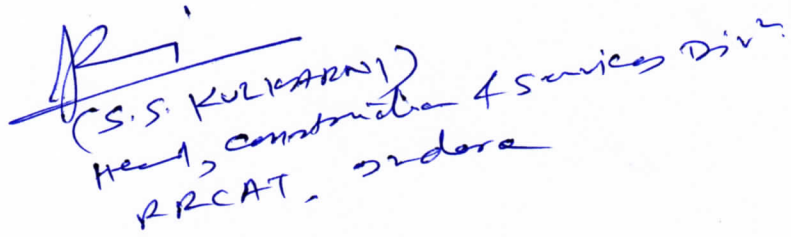 (S.S. KULKARNI)
Head, Construction & Services Divn.
RRCAT, Indore